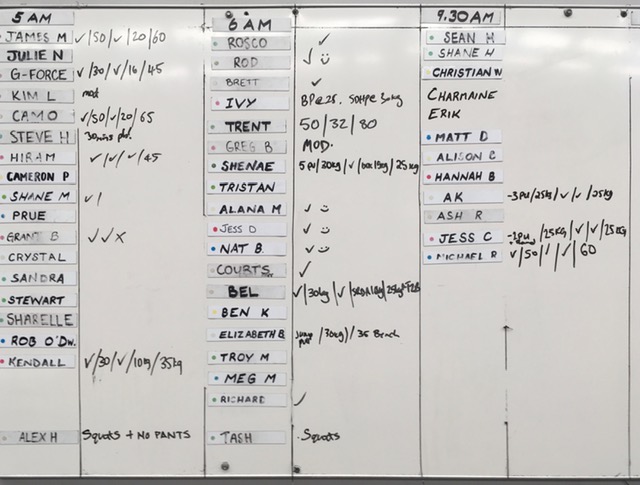 5 AM
JAMES M ✓/50/✓/20/60
JULIE N
G-FORCE ✓/30/✓/16/45
KIM L mod
CAMO ✓/50/✓/20/65
STEVE H 30mins
HIRAM ✓/✓/✓/45
CAMERON P
SHANE M ✓/
PRUE
GRANT B ✓✓X
CRYSTAL
SANDRA
STEWART
SHARELLE
ROB O'DW.
KENDALL ✓/30/✓/10kg/35kg
ALEX H Squats + NO PANTS
6 AM
ROSCO ✓
ROD ✓ ☺
BRETT ✓
IVY BP@25. 50HPE 30kg
TRENT 50/32/80
GREG B MOD.
SHENAE 5 PU/30kg/✓/60x15kg/25kg
TRISTAN
ALANA M ✓ ☺
JESS D ✓ ☺
NAT B. ✓ ☺
COURTS. ✓
BEL ✓/30kg/✓
BEN K
ELIZABETH B Jump PU/30kg)/35 Bench
TROY M
MEG M
RICHARD ✓
TASH Squats
9.30 AM
SEAN H
SHANE W
CHRISTIAN W
CHARMAINE
ERIK
MATT D
ALISON C
HANNAH B
AK -3PU/25kg/✓/✓/25kg
ASH R
JESS C /25KG/✓/✓/25KG
MICHAEL R ✓/50/✓/✓/60